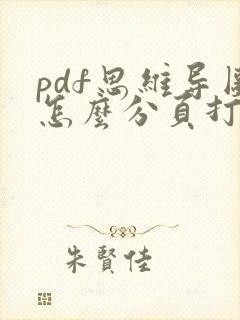 pdf思維导圖
怎麽分頁打
朱賢佳